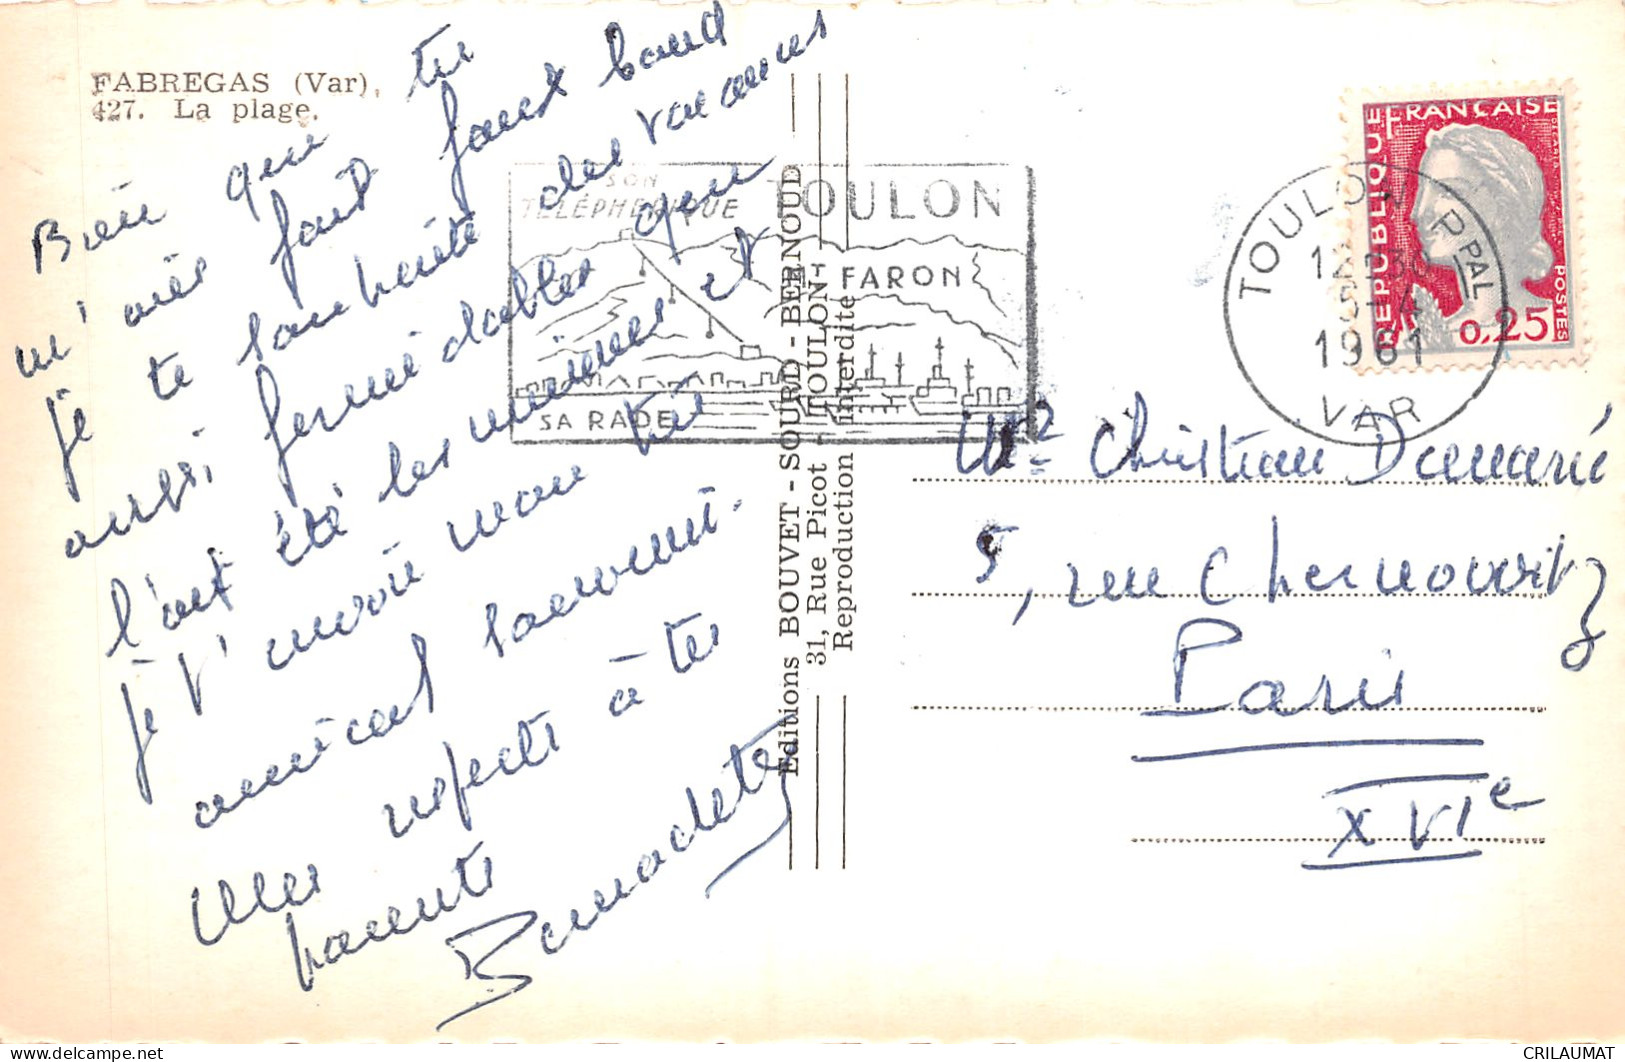 FABREGAS (Var),
427. La plage.
Bien que tu
m'aies fait faux bond
je te souhaite des vacances
aussi formidables que
l'ont été les miennes et
je t'envoie mon très
amical souvenir.
Mes respects à tes
parents
Bernadette
Editions BOUVET - SOURD - BERNOUD
31, Rue Picot - TOULON
Reproduction interdite
SON
TÉLÉPHERIQUE
TOULON
FARON
SA RADE
TOULON PPAL
12H30
5-4
1961
VAR
RÉPUBLIQUE FRANÇAISE
POSTES
0,25
Mr Christian Damarié
5, rue Chernoviz
Paris
XVIe
CRILAUMAT